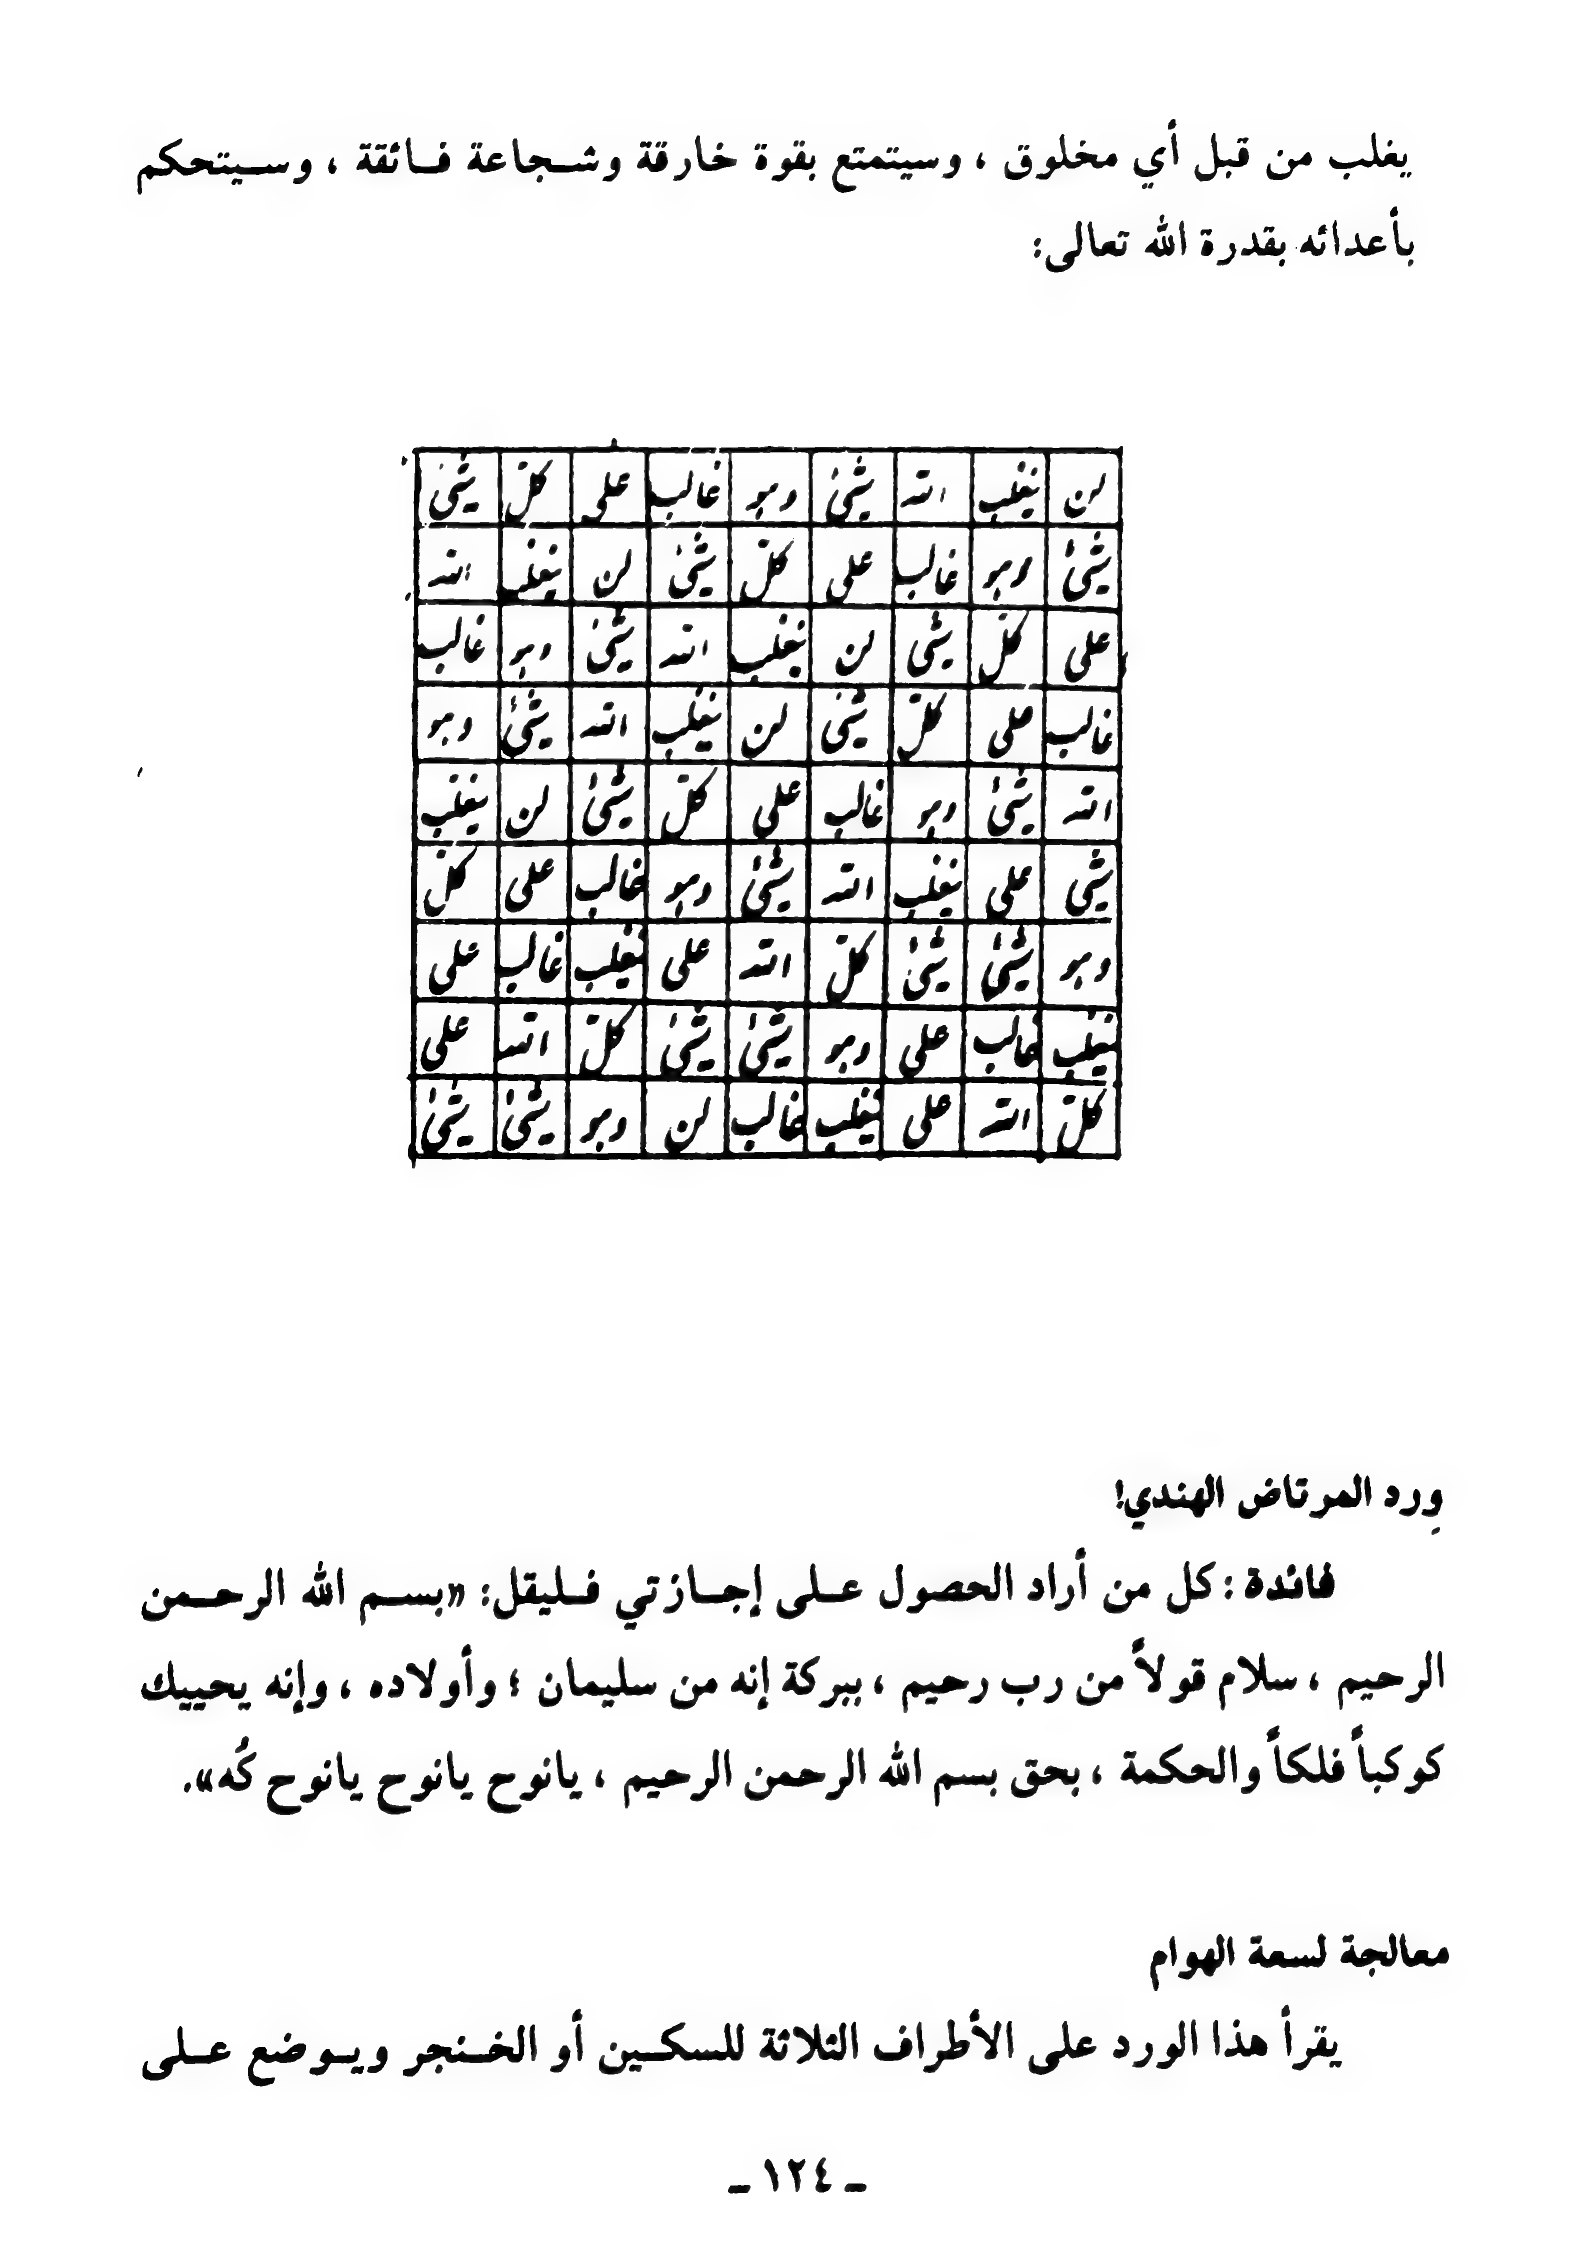 يغلب من قبل أي مخلوق ، وسيتمتع بقوة خارقة وشجاعة فائقة ، وسيتحكم
بأعدائه بقدرة الله تعالى:
لن يغلب الله شيئ وهو غالب على كل شيئ
شيئ وهو غالب على كل شيئ لن يغلب الله
على كل شيئ لن يغلب الله شيئ وهو غالب
غالب على كل شيئ لن يغلب الله شيئ وهو
الله شيئ وهو غالب على كل شيئ لن يغلب
شيئ على يغلب الله شيئ وهو غالب على كل
وهو شيئ شيئ كل الله على يغلب غالب على
يغلب غالب على وهو شيئ شيئ كل الله على
كل الله على يغلب غالب لن وهو شيئ شيئ
وِرد المرتاض الهندي!
فائدة : كل من أراد الحصول على إجازتي فليقل: «بسم الله الرحمن
الرحيم ، سلام قولاً من رب رحيم ، ببركة إنه من سليمان ؛ وأولاده ، وإنه يحييك
كوكباً فلكاً والحكمة ، بحق بسم الله الرحمن الرحيم ، يانوح يانوح يانوح كُه».
معالجة لسعة الهوام
يقرأ هذا الورد على الأطراف الثلاثة للسكين أو الخنجر ويوضع على
ـ ١٢٤ ـ